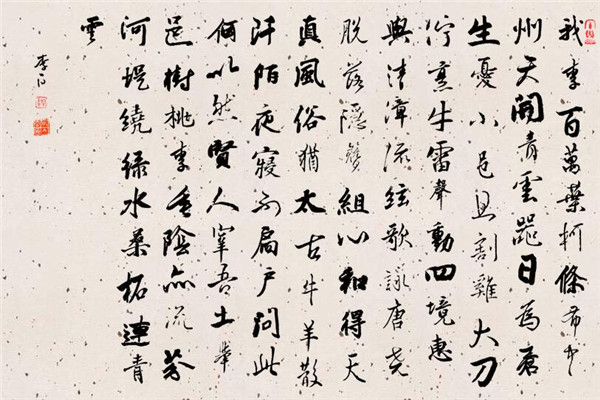 我李百萬葉柯條布中
州天開青雲器日為蒼
生憂小邑且割雞大刀
佇烹牛雷聲動四境惠
與清漳流絃歌詠唐堯
脫落隱簪組心和得天
真風俗猶太古牛羊散
阡陌夜寢不扃戶問此
何以然賢人宰吾土舉
邑樹桃李垂陰亦流芬
河堤繞綠水桑柘連青
雲
李白